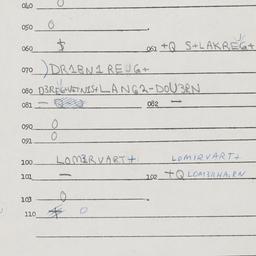 040 0
050 0
060 $ 061 +Q S+LAKREG+
070 )DR1BN1 REUG+
080 LANG2-DOU3RN
081 — 082 —
090 0
091 0
100 LOM3RVART+ LOMIRVART+
101 — 102 +Q LOM3RHA,RN
103 0
110 0